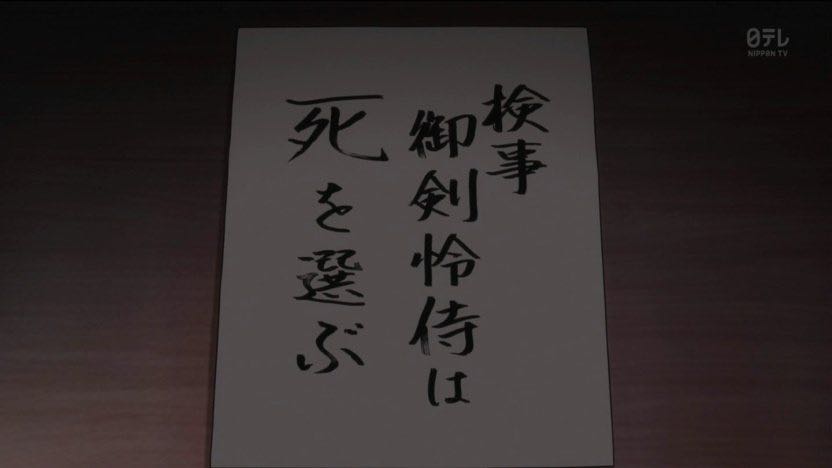 検事
御剣怜侍は
死を選ぶ
日テレ
NIPPON TV